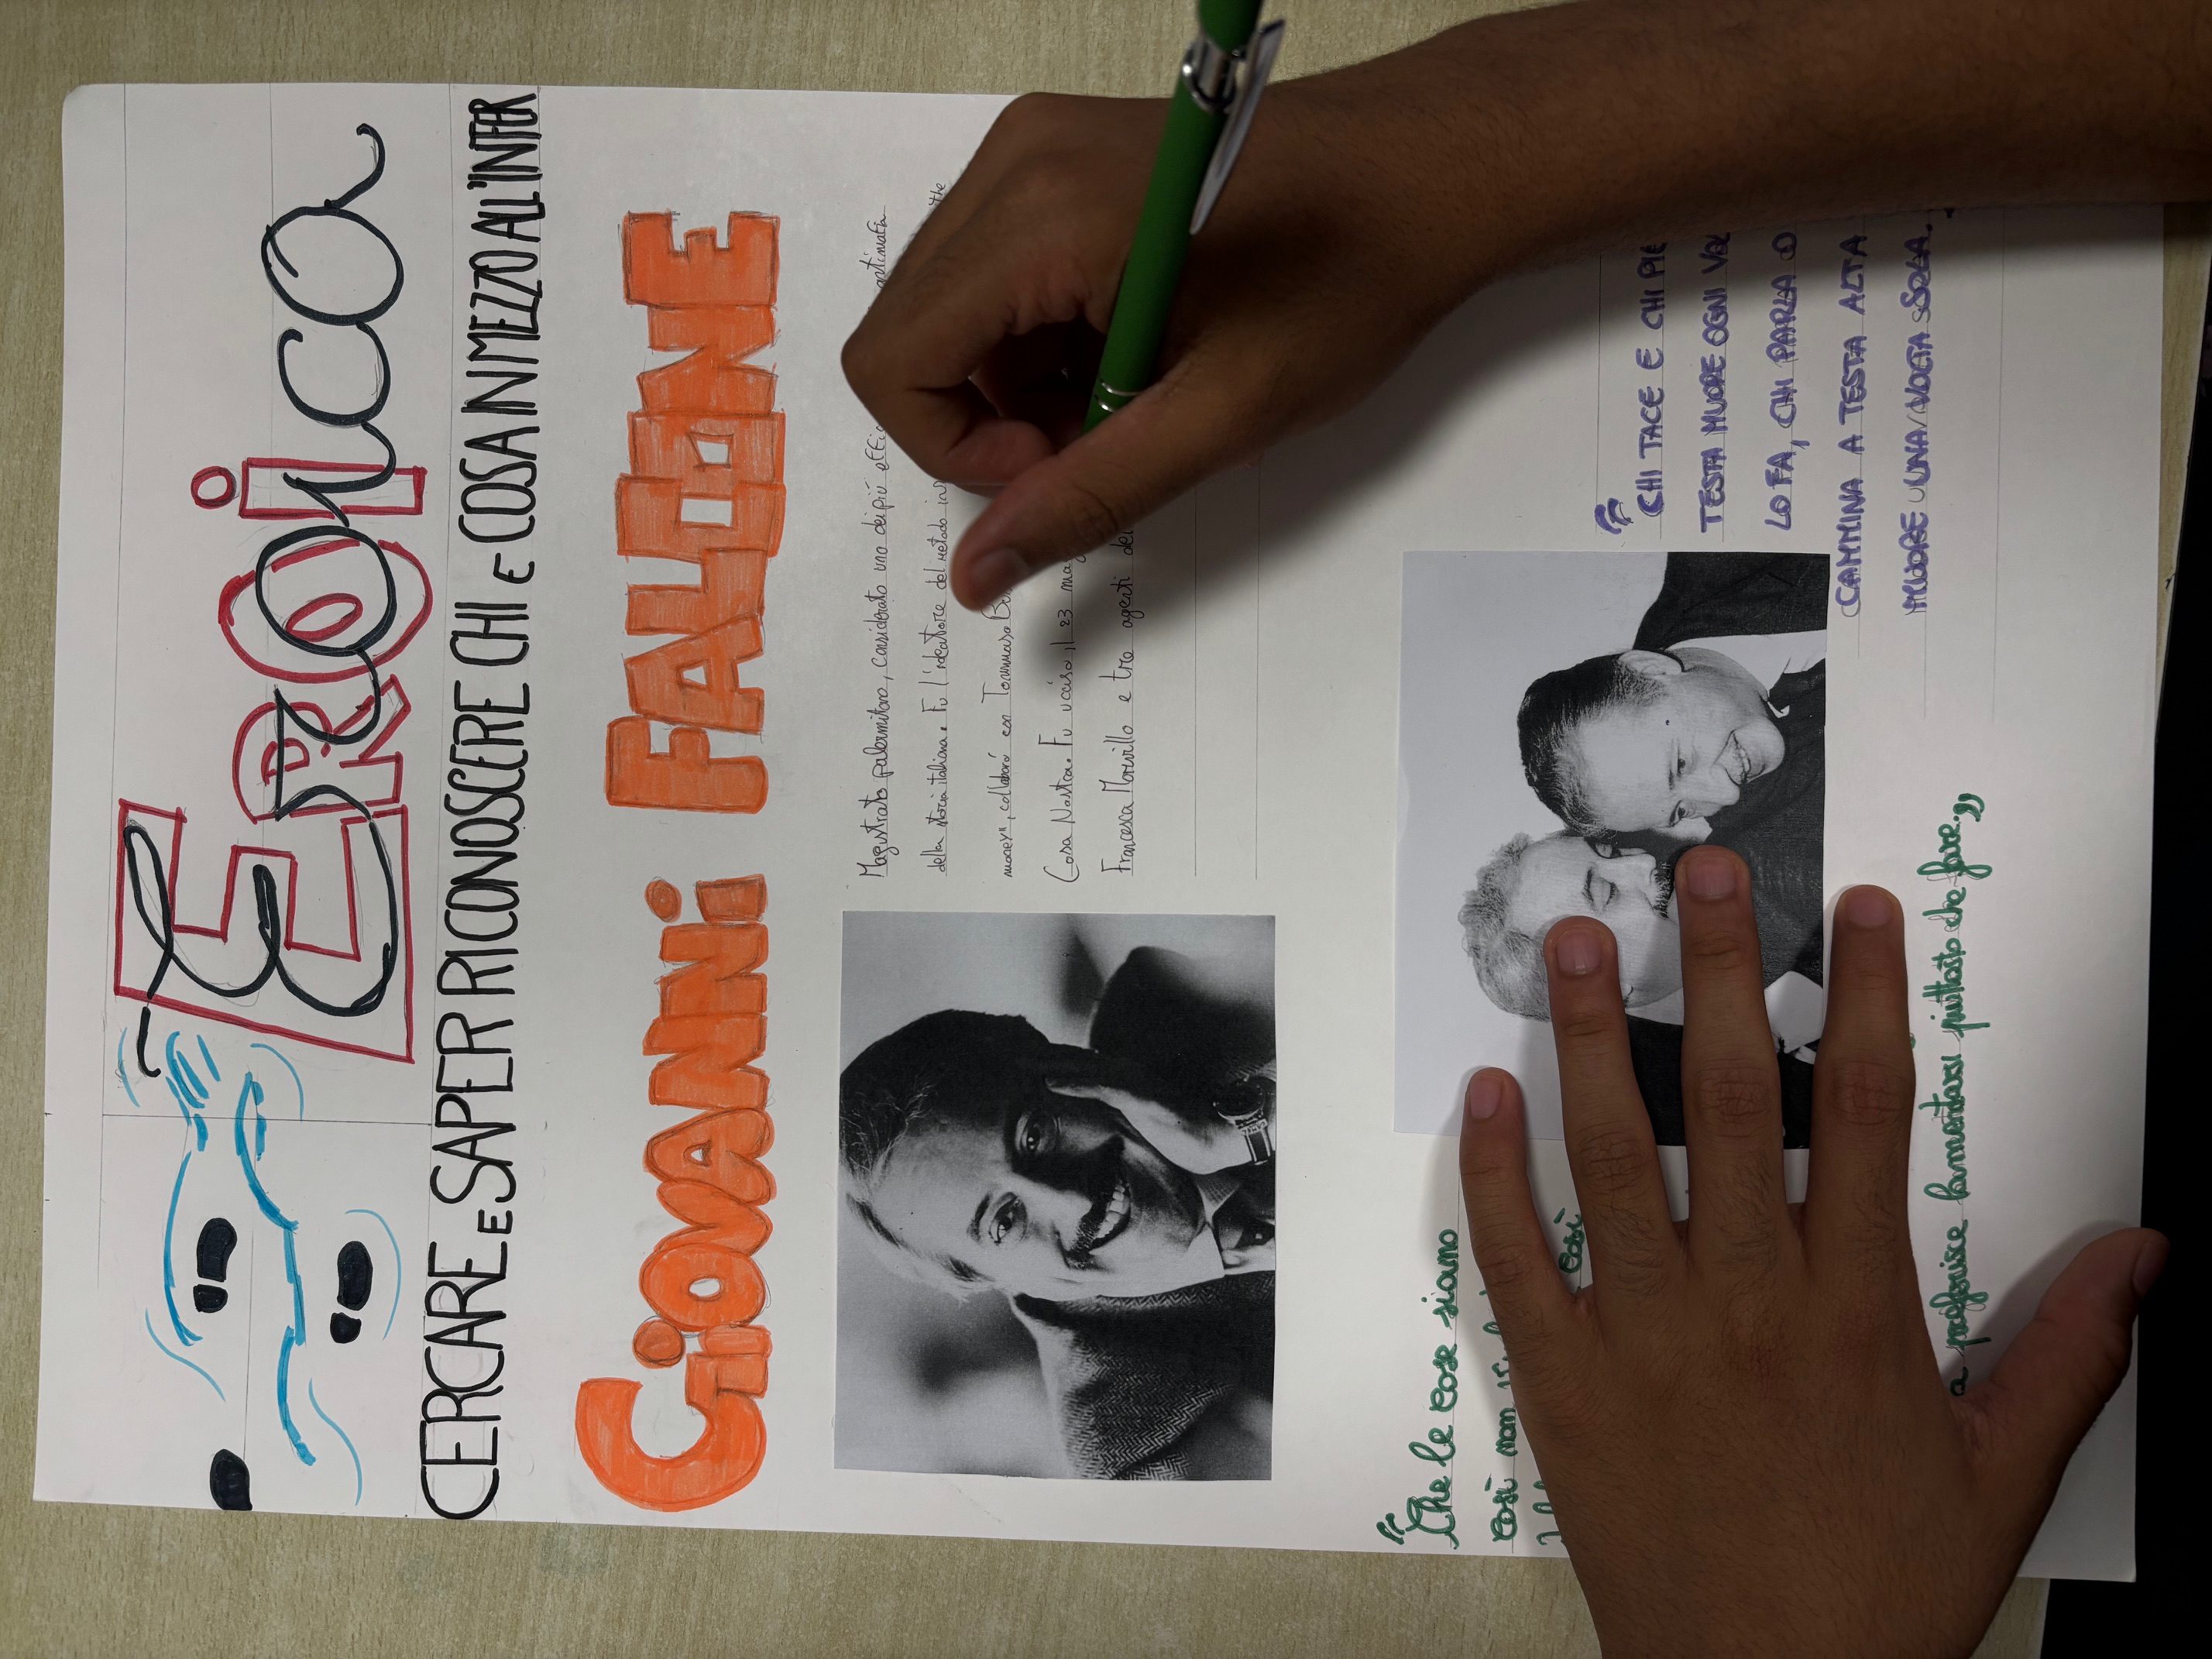 Eroica
EROI
CERCARE E SAPER RICONOSCERE CHI E COSA IN MEZZO ALL'INFER
GiOVANNi FALCONE
Magistrato palermitano, considerato uno dei più antimafia
della storia italiana. Fu l'ideatore del metodo the
money", collaborò con Tommaso
Cosa Nostra. Fu ucciso il 23
Francesca Morvillo e tre agenti
"Che le cose siano
così non
così
a preferisce lamentarsi piuttosto che fare."
"CHI TACE E CHI
TESTA MUORE OGNI
LO FA, CHI PARLA
CAMMINA A TESTA ALTA
MUORE UNA VOLTA SOLA.